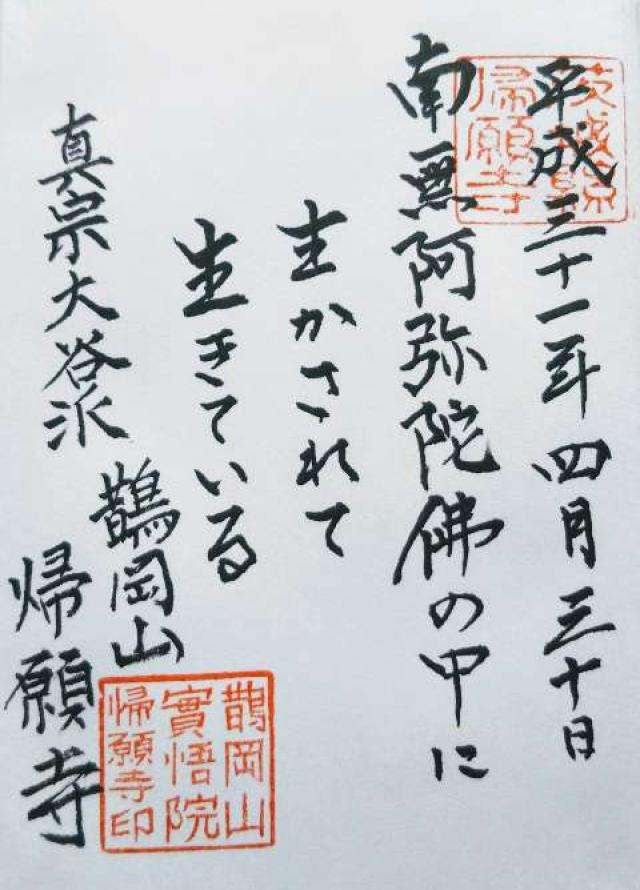 平成三十一年四月三十日
南無阿弥陀佛の中に
生かされて
生きている
真宗大谷派
鵲岡山
帰願寺
茨城県
帰願寺
鵲岡山
實悟院
帰願寺印